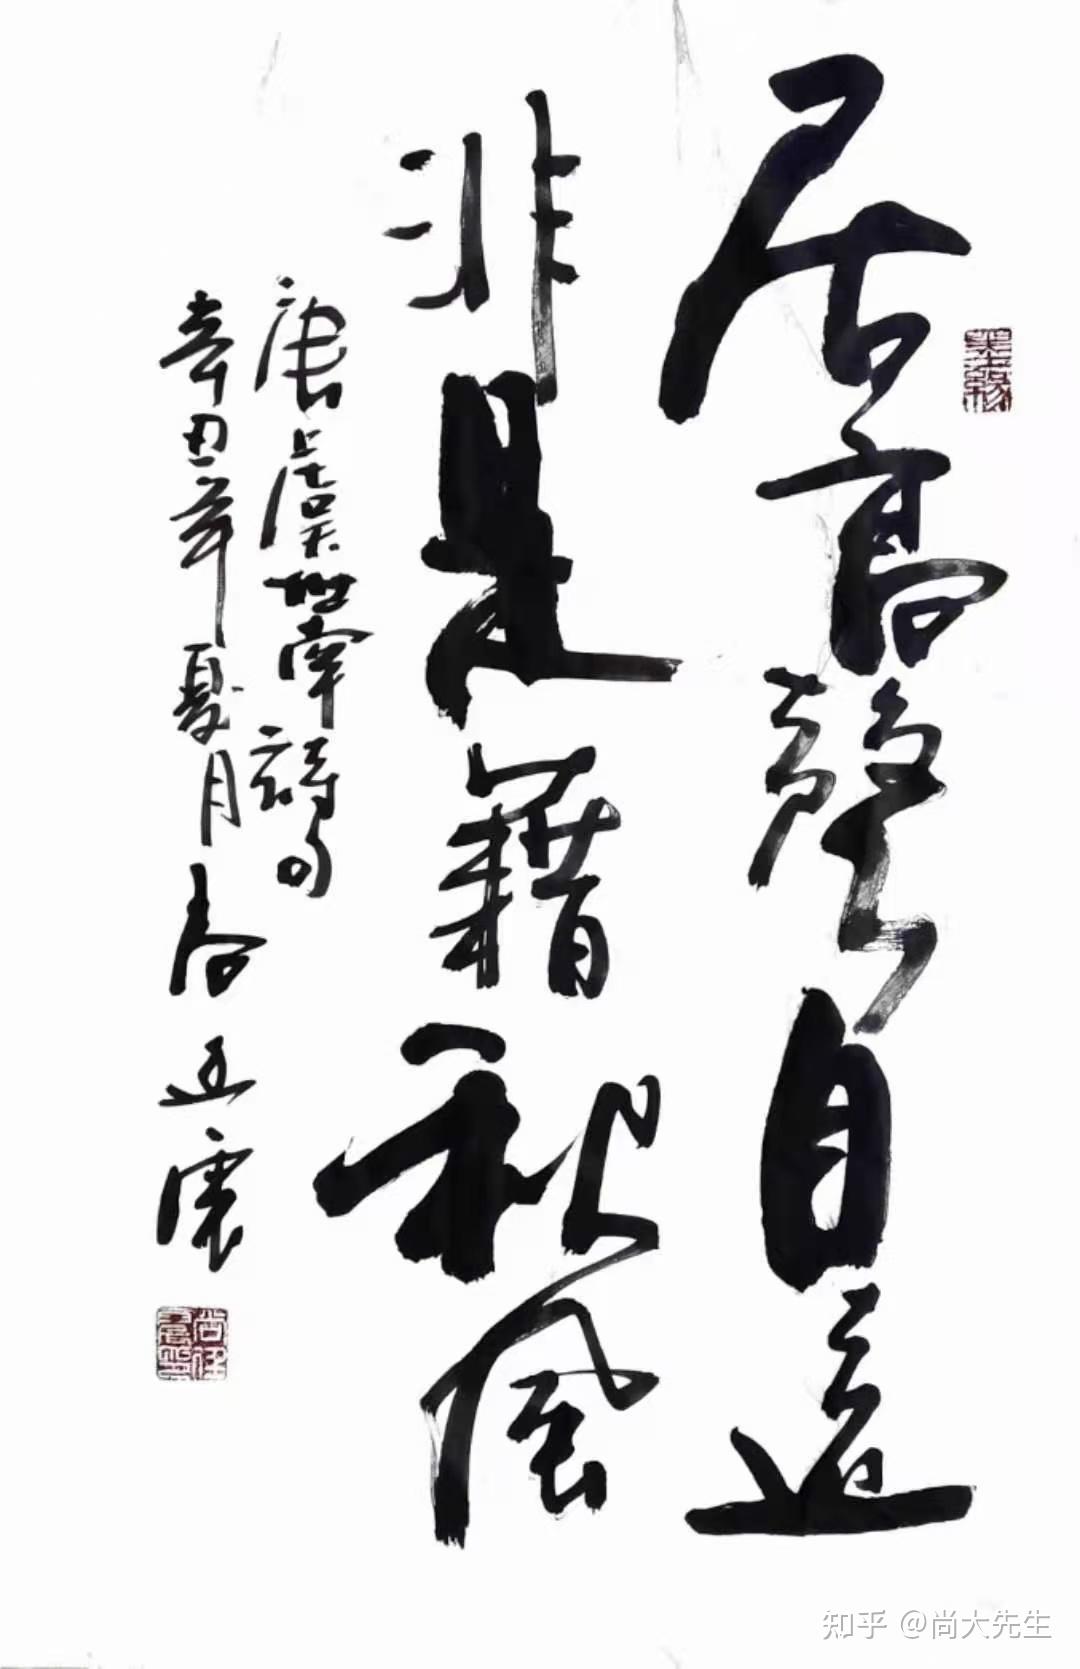 居高聲自遠
非是藉秋風
唐虞世南詩句
辛丑年夏月尚震
知乎 @尚大先生